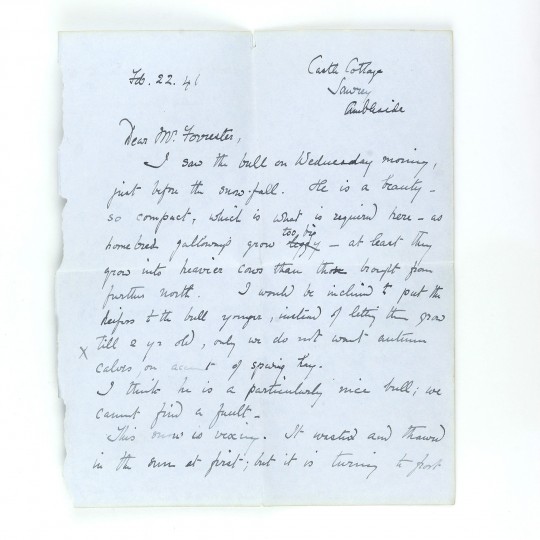 Feb. 22. 41
Castle Cottage
Sawrey
Ambleside
Dear Mr. Forrester,
I saw the bull on Wednesday morning,
just before the snow-fall. He is a beauty -
so compact, which is what is required here - as
too big
homebred galloways grow leggy - at least they
grow into heavier cows than those brought from
further north. I would be inclined to put the
heifers to the bull younger, instead of letting them grow
till 2 yr old, only we do not want autumn
X
calves on account of sparing hay.
I think he is a particularly nice bull; we
cannot find a fault -
This snow is vexing. It wasted and thawed
in the sun at first; but it is turning to frost